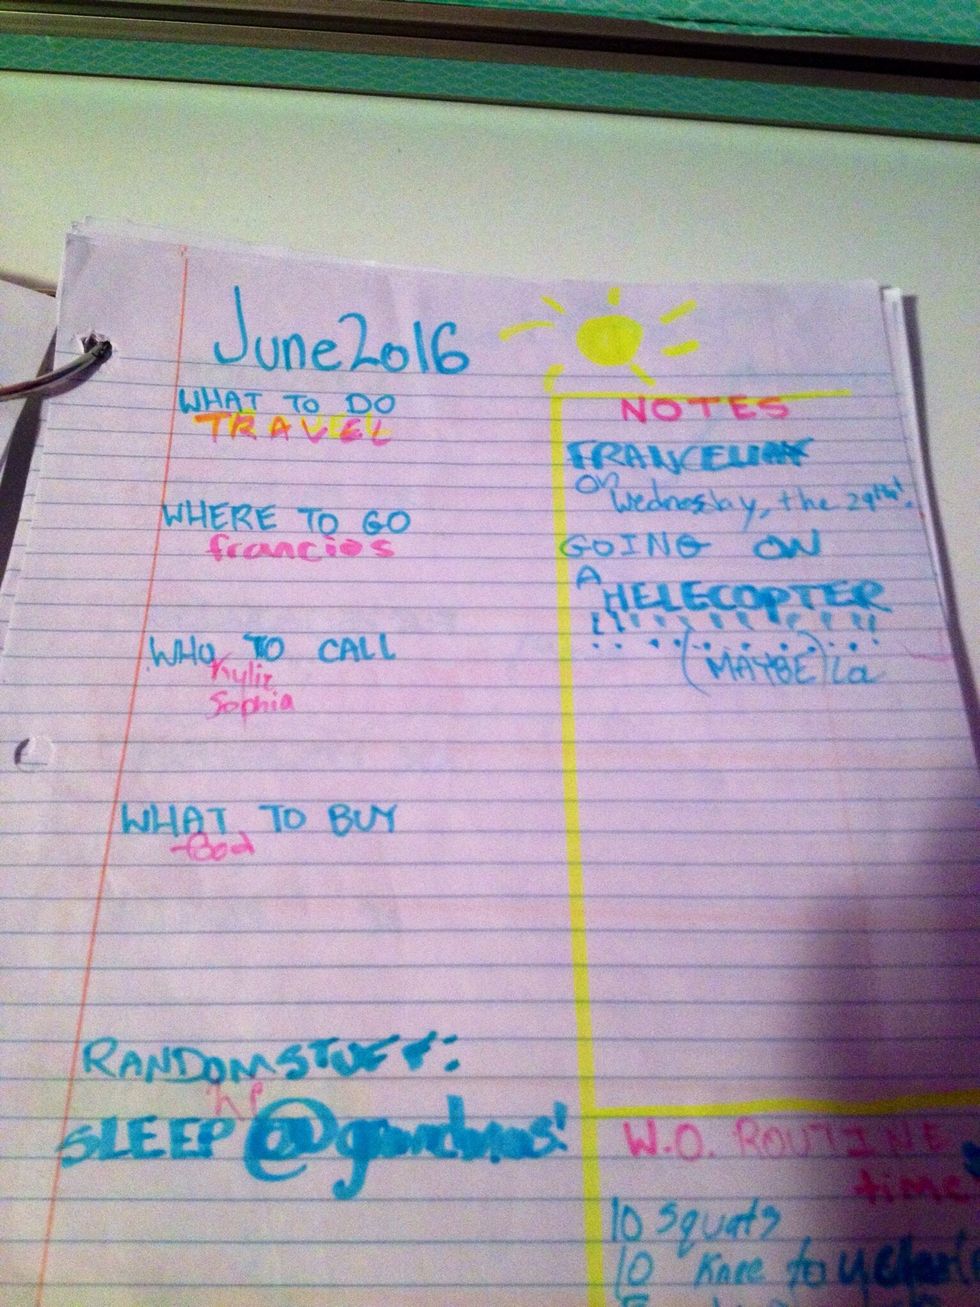 June 2016
WHAT TO DO
TRAVEL
WHERE TO GO
francios
WHO TO CALL
Kylie
Sophia
WHAT TO BUY
RANDOM STUFF:
SLEEP @grandmas!
NOTES
on Wednesday, the 29th!
GOING ON
A HELECOPTER
!!!!!!!!!!
(MAYBE)
W.O. ROUTINE
time
10 squats
10 Knee to